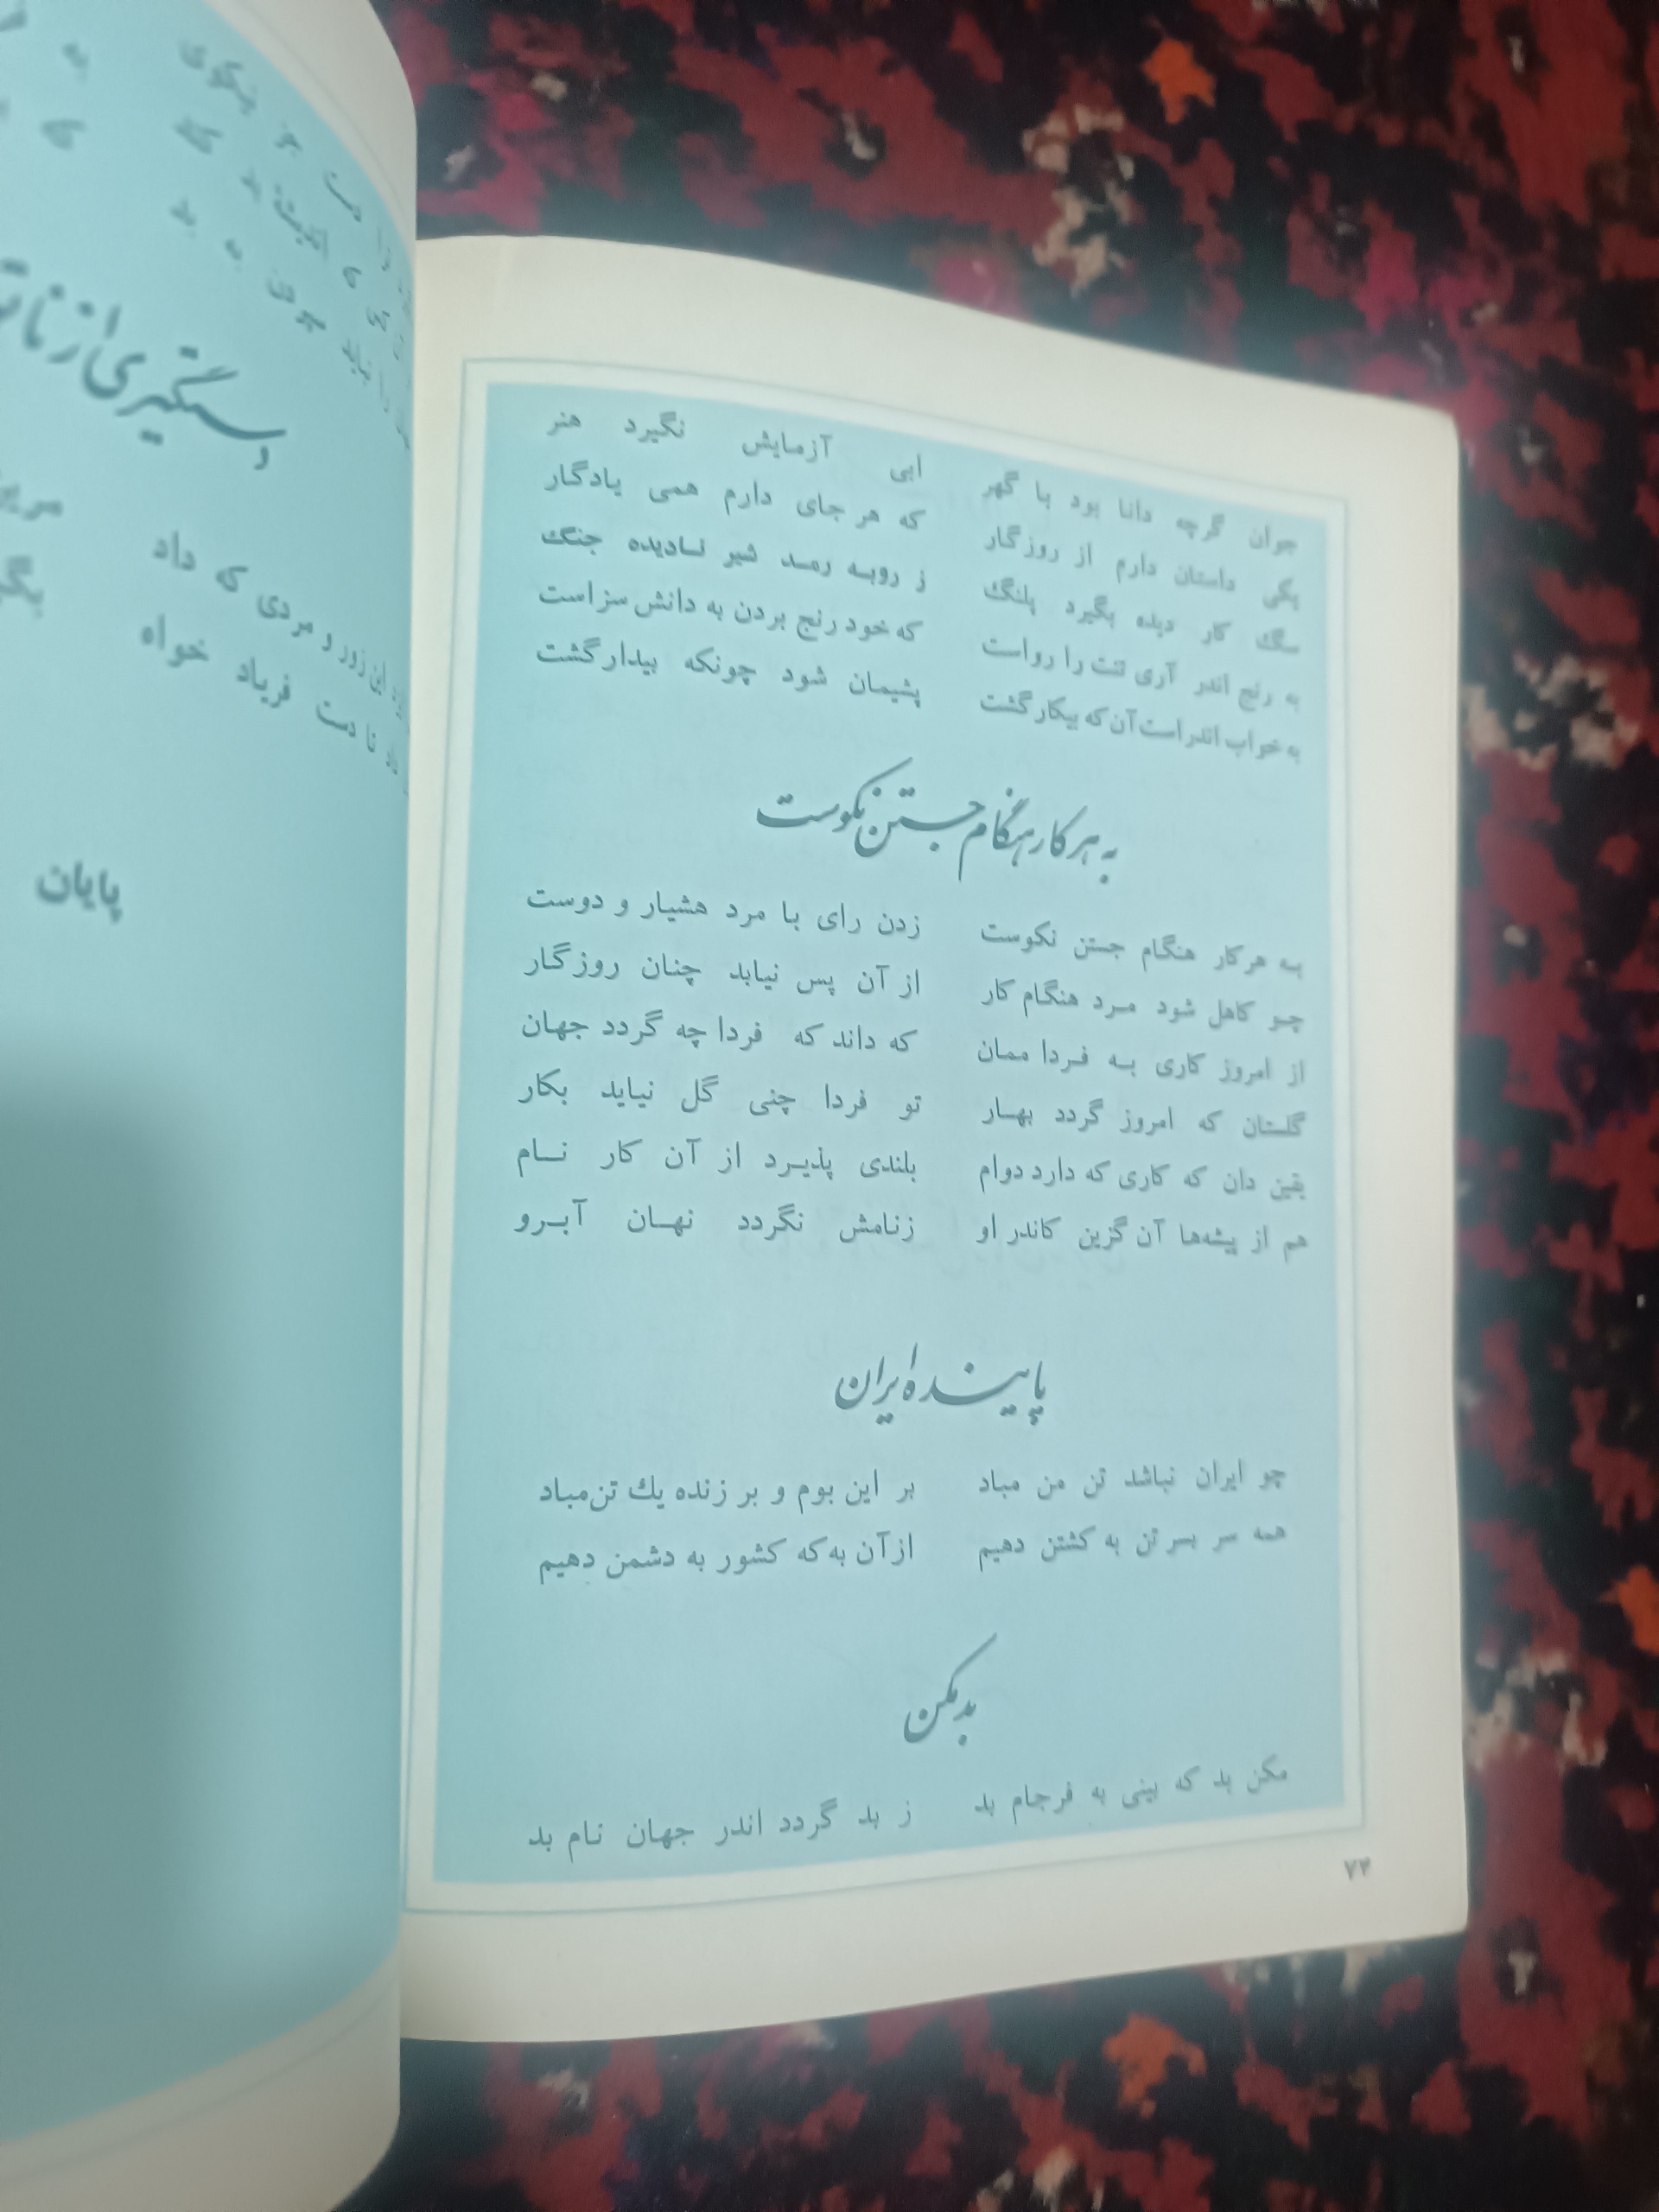 جوان گرچه دانا بود با گهر ابی آزمایش نگیرد هنر
یکی داستان دارم از روزگار که هر جای دارم همی یادگار
سگ کار دیده بگیرد پلنگ ز روبه رمد شیر نادیده جنگ
به رنج اندر آری تنت را رواست که خود رنج بردن به دانش سزاست
به خواب اندراست آن که بیکار گشت پشیمان شود چونکه بیدار گشت
به هر کار هنگام جستن نکوست
به هرکار هنگام جستن نکوست زدن رای با مرد هشیار و دوست
چو کاهل شود مرد هنگام کار از آن پس نیابد چنان روزگار
از امروز کاری به فردا ممان که داند که فردا چه گردد جهان
گلستان که امروز گردد بهار تو فردا چنی گل نیاید بکار
یقین دان که کاری که دارد دوام بلندی پذیرد از آن کار نام
هم از پیشه‌ها آن گزین کاندر او زنامش نگردد نهان آبرو
پاینده ایران
چو ایران نباشد تن من مباد بر این بوم و بر زنده یك تن مباد
همه سر بسر تن به کشتن دهیم از آن به که کشور به دشمن دهیم
بد مکن
مکن بد که بینی به فرجام بد ز بد گردد اندر جهان نام بد
۷۲
نیکوی
دستگیری از
این زور و مردی که داد
تا دست فریاد خواه
پایان